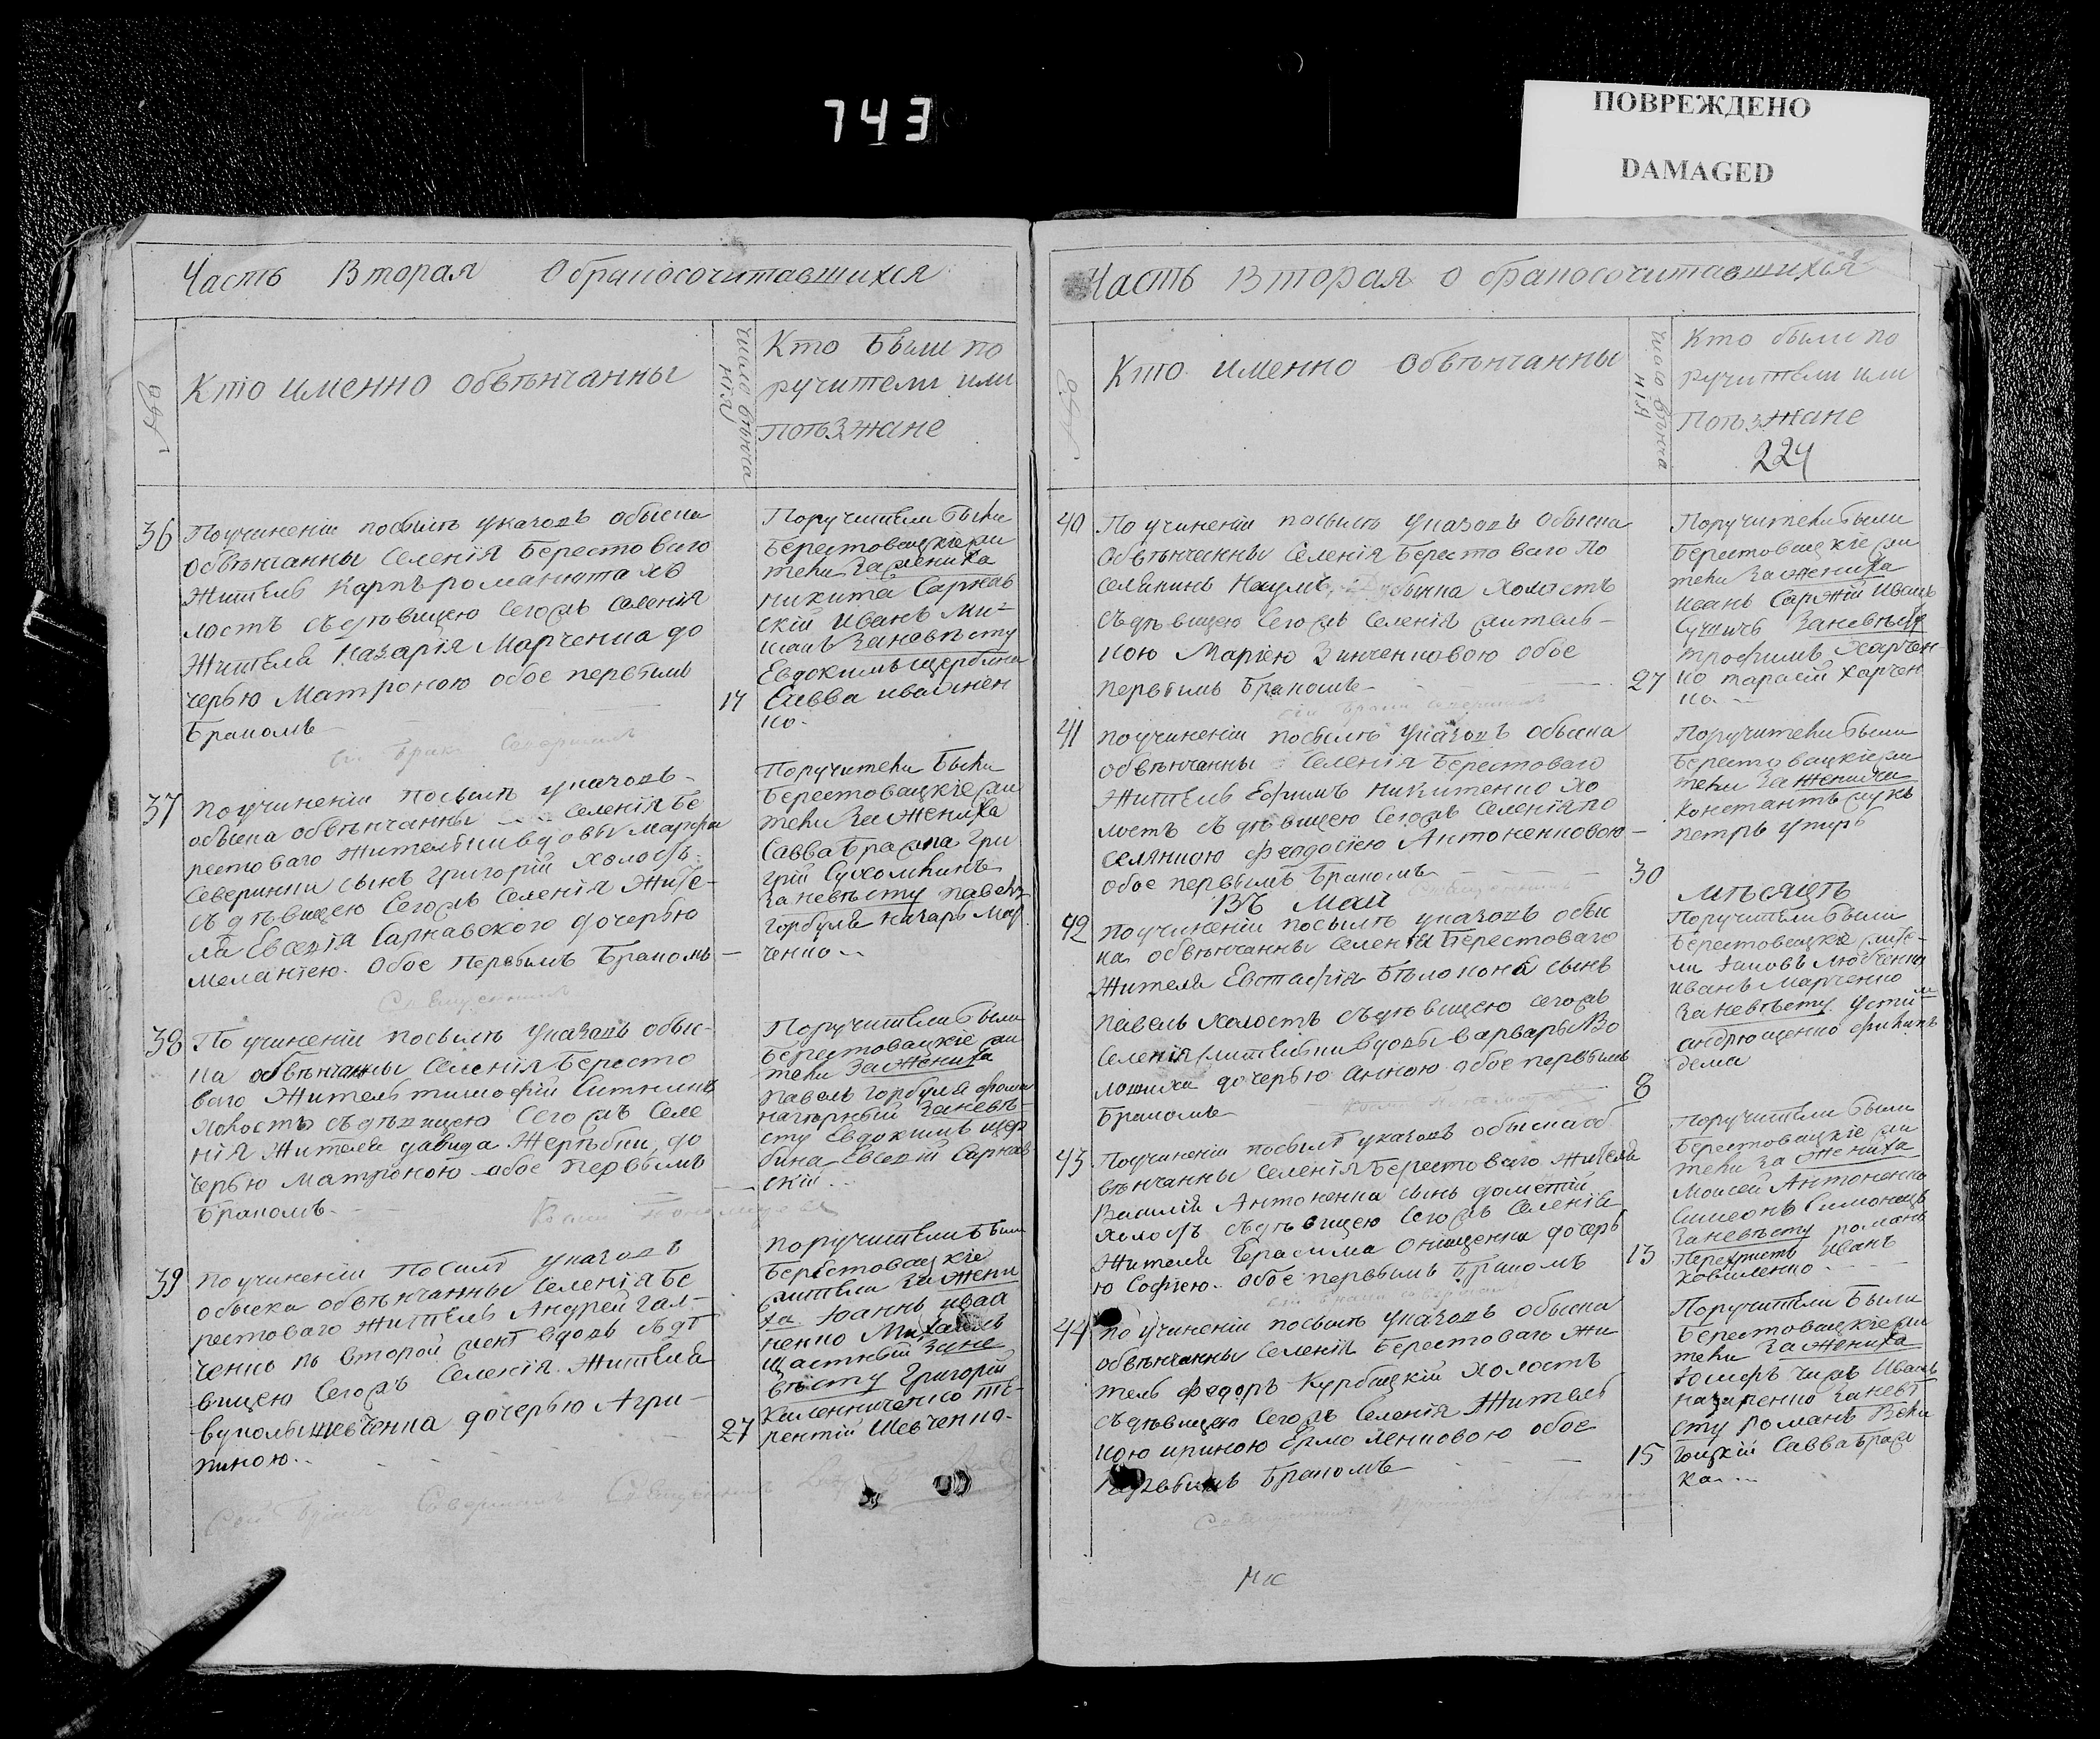 743
ПОВРЕЖДЕНО
DAMAGED
Часть Вторая О бракосочитавшихся
Кто именно обвѣнчанны
число вѣнча
нія
Кто были по
ручители или
поѣзжане
36
Поучиненіи посымъ указовъ обыска
обвѣнчанны Селенія Берестоваго
Житель Карпъ романюта хо
лостъ съ дѣвицею Сегожъ селенія
Жителя Назарія Марченка до
черью Матроною обое первымъ
Бракомъ
14
Поручители были
Берестовацкіе жи
тели За жениха
никита Сарнав
скій Иванъ Ми
Заневѣсту
Евдокимъ щербина
Савва иванен
ко.
37
поучиненіи посымъ указовъ
обыска обвѣнчанны Селенія Бе
рестоваго жительки вдовы Марфы
Северинки сынъ григорій холостъ
съ дѣвицею Сегожъ селенія Жите-
ля Евсевія Сарнавского дочерью
меланіею. Обое первымъ Бракомъ
Поручители были
Берестовацкіе жи
тели За жениха
Савва Бражка Гри
грій Сухомлинъ
Заневѣсту павелъ
горбуля назаръ мар
ченко
38
По учиненіи посымъ указовъ обыс-
ка обвѣнчанны Селенія Бересто
ваго Житель тимофій Ситникъ
холостъ съ дѣвицею Сегожъ Селе
нія Жителя давида Жеребки до
черью Матроною обое первымъ
Бракомъ
Поручители были
Берестовацкіе жи
тели За жениха
павелъ горбуля фома
нагорный Заневѣ-
сту Евдокимъ щер
бина Евсевій Сарнав
скій
39
поучиненіи посымъ указовъ
обыска обвѣнчанны Селенія Бе
рестоваго житель Андрей гал-
ченко по второй женѣ вдовъ съ дѣ
вицею Сегожъ Селенія Жителя
вукола шевченка дочерью Агри-
пиною
27
поручители были
Берестовацкіе
жители За жени
ха Іоаннъ ива
ненко Михаилъ
щастный Зане
вѣсту Григорій
Калениченко те
рентій Шевченко.
Часть Вторая о бракосочитавшихся
Кто именно обвѣнчанны
число вѣнча
нія
Кто были по
ручители или
Поѣзжане
224
40
По учиненіи посымъ указовъ обыска
обвѣнчанны Селенія Берестоваго По
селянинъ Наумъ холостъ
съ дѣвицею Сегожъ Селенія житель-
кою Маріею Зинченковою обое
первымъ Бракомъ
27
Поручители были
Берестовацкіе жи
тели За жениха
Иванъ Саржій Иванъ
Заневѣсту
трофимъ Харчен
ко тарасій харчен
ко.
41
поучиненіи посымъ указовъ обыска
обвѣнчанны Селенія Берестоваго
Житель Ефимъ никитенко хо
лостъ съ дѣвицею Сегожъ Селенія по
селянкою Феодосіею Антоненковою
обое первымъ Бракомъ
30
Поручители были
Берестовацкіе жи
тели За жениха
петръ
Въ Май
мѣсяцѣ
42
поучиненіи посымъ указовъ обыс
ка обвѣнчанны Селенія Берестоваго
Жителя Евстафія Бѣлоконя сынъ
павелъ холостъ съ дѣвицею сегожъ
Селенія жительки вдовы варвары Во
лошки дочерью Анною обое первымъ
Бракомъ
8
Поручители были
Берестовацкіе жите-
ли
иванъ Марченко
Заневѣсту устим
андрющенко филипъ
дема
43
Поучиненіи посымъ указовъ обыска об
вѣнчанны Селенія Берестоваго Жителя
Василія Антоненка сынъ дометій
холостъ съ дѣвицею Сегожъ Селенія
Жителя Герасима Онищенка дочерь
ю Софіею обое первымъ Бракомъ
13
Поручители были
Берестовацкіе жи
тели За жениха
Моисей Антоненко
Симеонъ Симонецъ
Заневѣсту романъ
Перехристъ иванъ
Ковиленко
44
поучиненіи посымъ указовъ обыска
обвѣнчанны Селенія Берестоваго Жи
тель Федоръ Курбацкій Холостъ
съ дѣвицею Сегожъ Селенія Житель
кою ириною Ермоленковою обое
Первымъ Бракомъ
15
Поручители были
Берестовацкіе жи
тели За жениха
Іосифъ Чижъ Иванъ
назаренко Заневѣ
сту романъ Вели
Савва Браж
ка